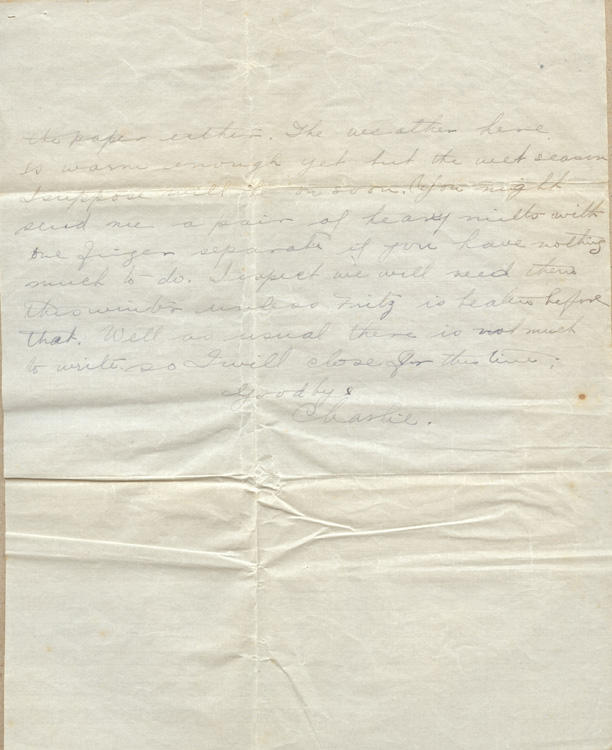 no paper either. The weather here
is warm enough yet but the wet season
I suppose will be on soon. You might
send me a pair of heavy mitts with
one finger separate if you have nothing
much to do. I expect we will need them
this winter unless Fritz is beaten before
that. Well as usual there is not much
to write so I will close for this time;
Goodbye
Charlie.